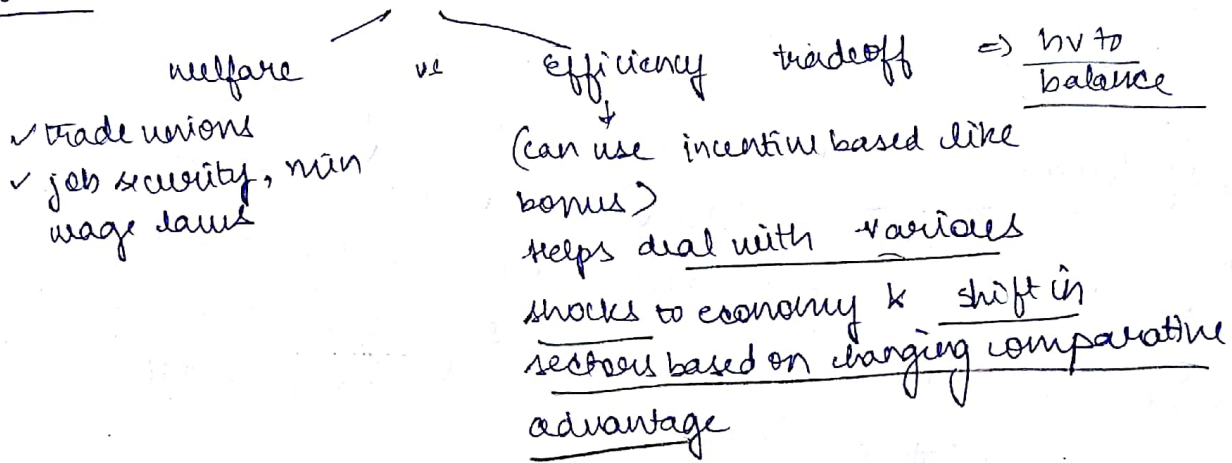 welfare vs Efficiency tradeoff ⇒ hv to balance
✓ trade unions
✓ job security, min
wage laws
(can use incentive based like
bonus)
Helps deal with various
shocks to economy & shift in
sectors based on changing comparative
advantage